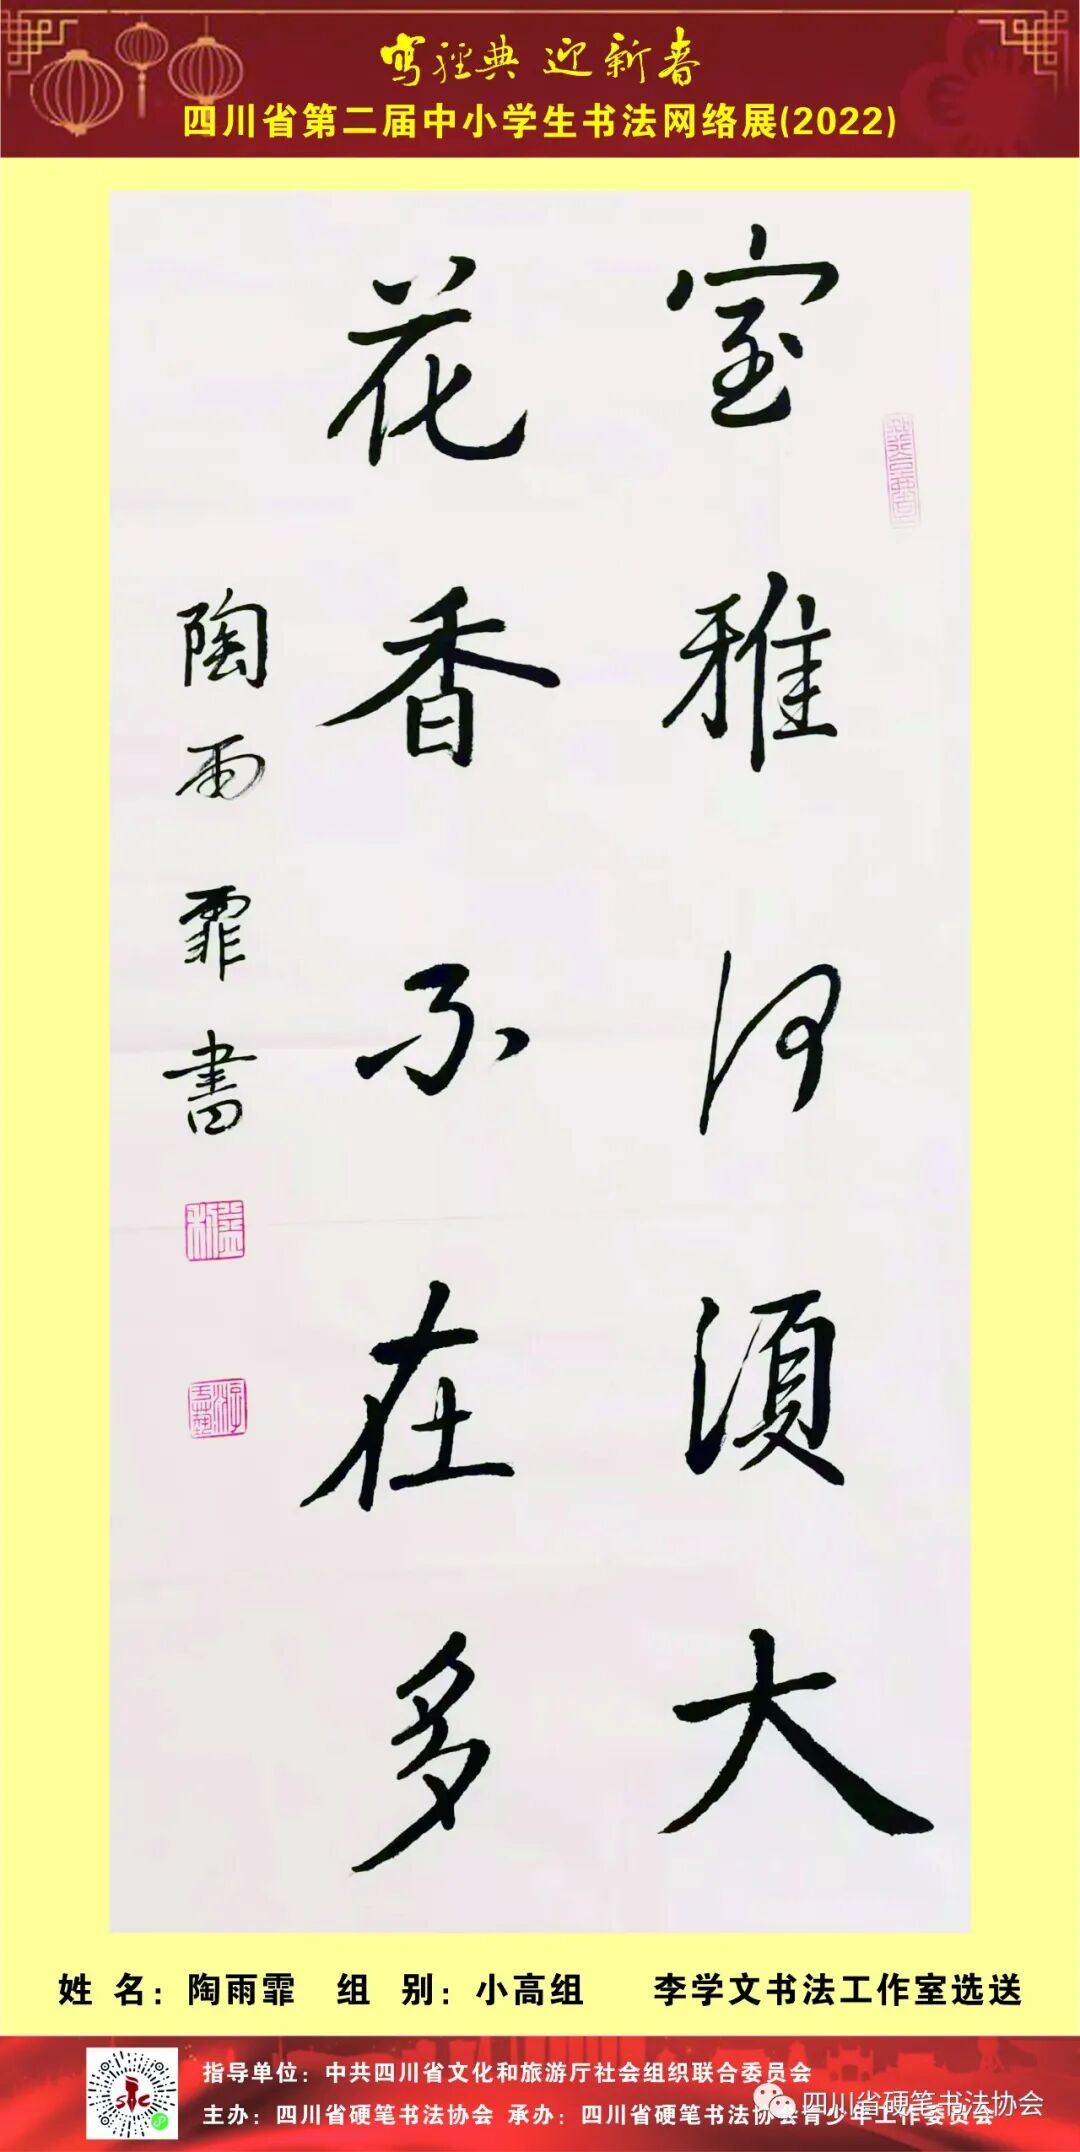 寫經典 迎新春
四川省第二届中小学生书法网络展(2022)
室雅何須大
花香不在多
陶雨霏書
姓 名：陶雨霏 组 别：小高组 李学文书法工作室选送
指导单位：中共四川省文化和旅游厅社会组织联合委员会
主办：四川省硬笔书法协会 承办：四川省硬笔书法协会青少年工作委员会
四川省硬笔书法协会